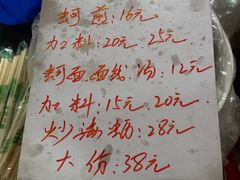 蚵煎：16元
加料：20元 25元
蚵面.面线.汤：12元
加料：15元.20元.
炒海蛎：28元
大份：38元